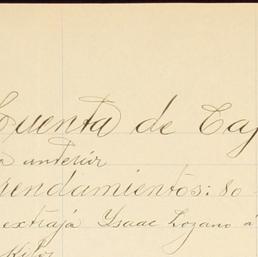 Cuenta de Caj
a anterior
rendamientos: 80
extrajá Ysaac Lozano á
Kilos